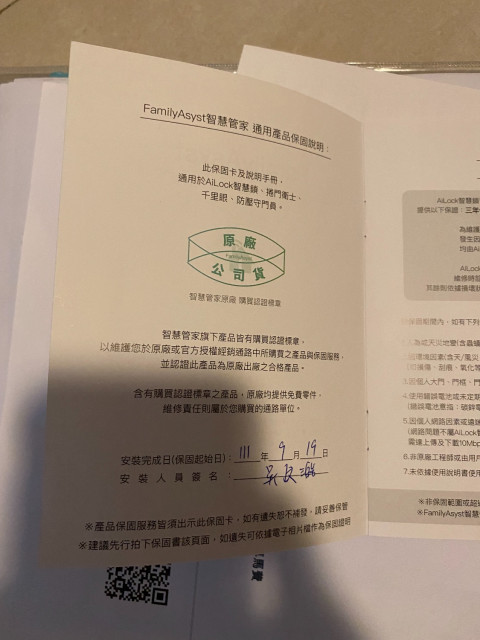 FamilyAsyst智慧管家 通用產品保固說明：
此保固卡及說明手冊，
適用於AiLock智慧鎖、捲門衛士、
千里眼、防壓守門員。
原廠
FamilyAsyst
公司貨
智慧管家原廠 購買認證標章
智慧管家旗下產品皆有購買認證標章，
以維護您於原廠或官方授權經銷通路中所購買之產品與保固服務，
並認證此產品為原廠出廠之合格產品。
含有購買認證標章之產品，原廠均提供免費零件，
維修責任則屬於您購買的通路單位。
安裝完成日(保固起始日)：111年9月19日
安裝人員簽名：
※產品保固服務皆須出示此保固卡，如有遺失恕不補發，請妥善保管
※建議先行拍下保固書該頁面，如遺失可依據電子相片檔作為保固證明
AiLock智慧鎖
提供以下保證：三年
為維護
發生因
均由Ai
AiLo
維修時
保固期間內，如有下列
4.使用錯誤電池或未定期
5.因個人網路因素或遠端
(網路問題不屬AiLock智
需達上傳及下載10Mbp
6.非原廠工程師或由用戶
7.未依據使用說明書使用
※非保固範圍或超過
※FamilyAsyst智慧